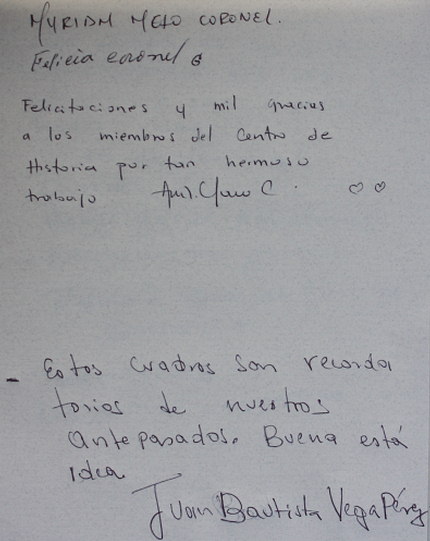 MYRIAM MELO CORONEL.
Felicia coronel
Felicitaciones y mil gracias
a los miembros del Centro de
Historia por tan hermoso
trabajo
- Estos cuadros son recorda
torios de nuestros
antepasados. Buena está
idea.
Juan Bautista Vega Pérez